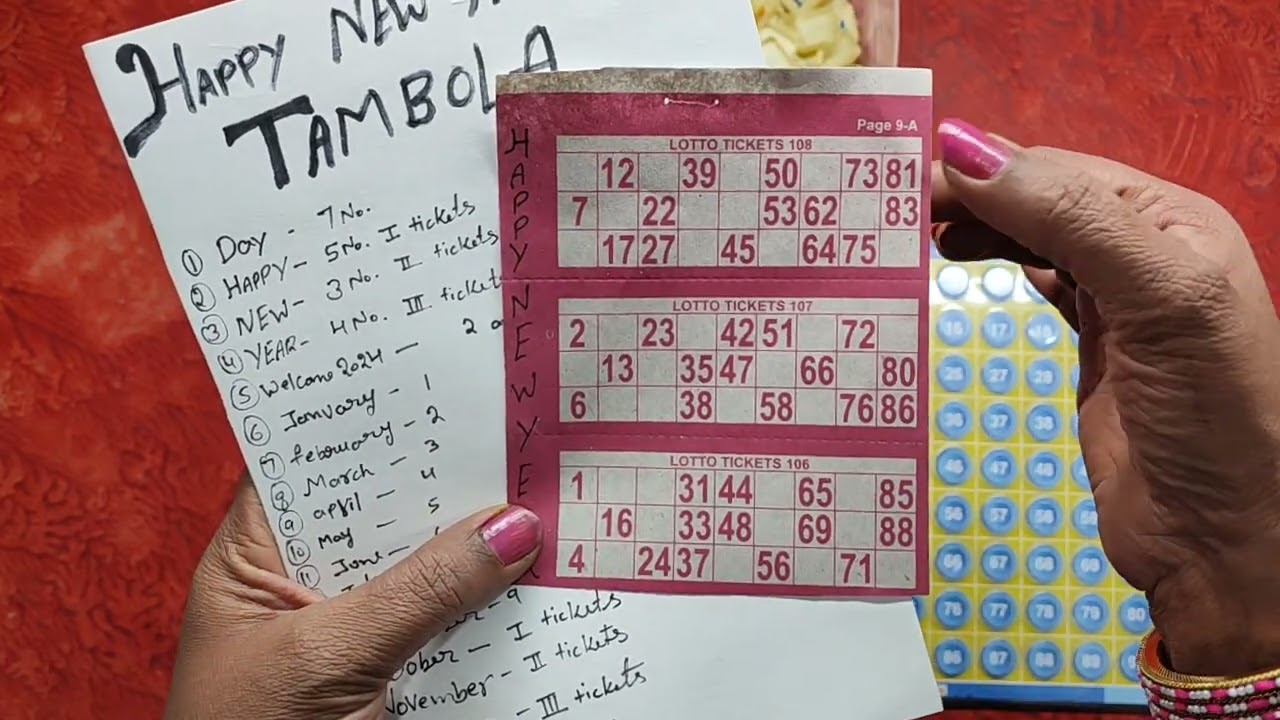 HAPPY NEW
TAMBOLA
① Day - 7 No.
② HAPPY - 5 No. I tickets
③ NEW - 3 No. II tickets
④ YEAR - 4 No. III tickets
⑤ Welcome 2024 - 2
⑥ January - 1
⑦ february - 2
⑧ March - 3
⑨ april - 4
⑩ may - 5
⑪ June -
- 9
- I tickets
November - II tickets
- III tickets
HAPPY
NEW
YE
Page 9-A
LOTTO TICKETS 108
12 39 50 73 81
7 22 53 62 83
17 27 45 64 75
LOTTO TICKETS 107
2 23 42 51 72
13 35 47 66 80
6 38 58 76 86
LOTTO TICKETS 106
1 31 44 65 85
16 33 48 69 88
4 24 37 56 71
16 17 18
26 27 28
36 37 38
46 47 48
56 57 58
66 67 68 69
76 77 78 79 80
86 87 88 89